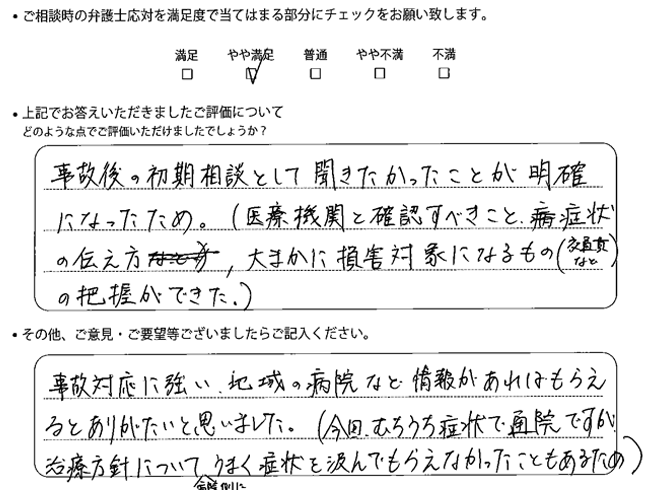 ・ご相談時の弁護士応対を満足度で当てはまる部分にチェックをお願い致します。
満足 やや満足 普通 やや不満 不満
□ ☑ □ □ □
・上記でお答えいただきましたご評価について
どのような点でご評価いただけましたでしょうか？
事故後の初期相談として聞きたかったことが明確
になったため。(医療機関と確認すべきこと、症状
の伝え方、大まかに損害対象になるもの(交通費など)
の把握ができた。)
・その他、ご意見・ご要望等ございましたらご記入ください。
事故対応に強い、地域の病院など情報があればもらえ
るとありがたいと思いました。(今回、むちうち症状で通院ですが
治療方針について、病院側にうまく症状を汲んでもらえなかったこともあるため)